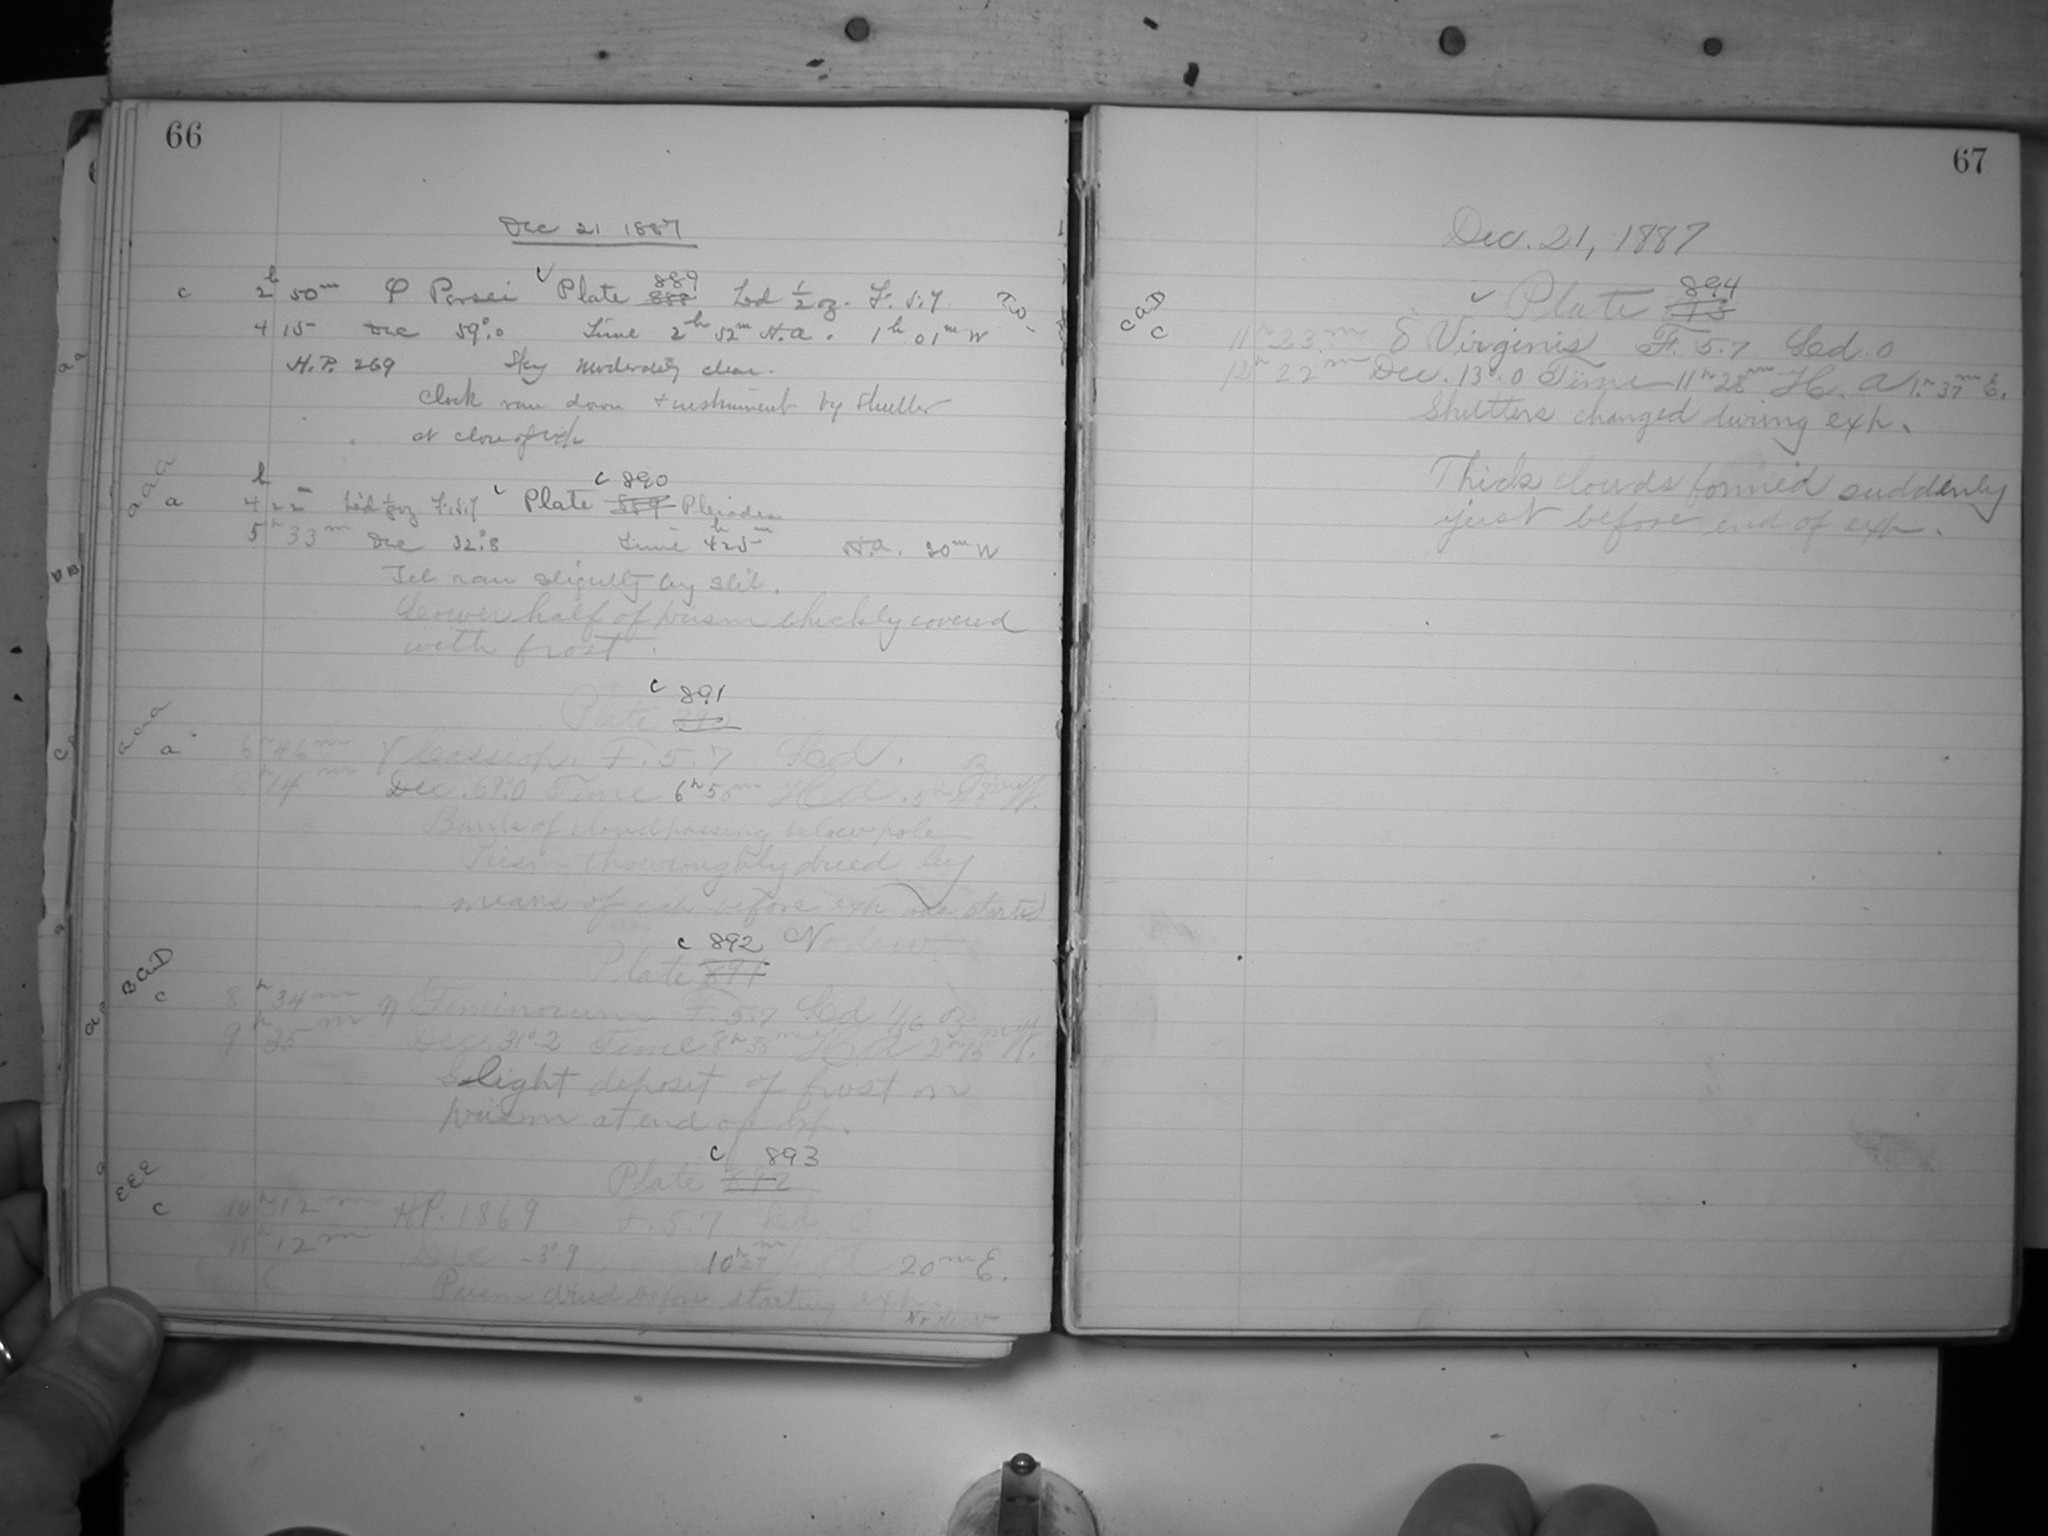 66
Dec 21 1887
c 2h 50m φ Persei ✓ Plate 889 888 Led ½ oz. F. 5.7.
4 15 Dec 59°.0 Time 2h 52m H.A. 1h 01m W
H.P. 269 Sky moderately clear.
Clock ran down & instrument by shutter
at close of exp
aaa
a 4h 22m F. 5.7 ✓ Plate c 890 889 Pleiades
5h 33m Dec 32°.8 Time 4h 25m H.A. 20m W
Tel ran slightly by slit.
Lower half of prism thickly covered
with frost.
c 891
Plate 890
aaa
a 6h 46m γ Cassiop. F. 5.7 Led.
14m Dec. 69°.0 Time 6h 50m H.A.
Bank of cloud passing below pole
Prism thoroughly dried by
means of before exp was started
c 892 No dew
Plate 891
BAD
c 8h 34m η Geminorum F. 5.7 Led
9h 35m Dec. 31°.2 Time 8h 38m H.A. 2h 15m W.
Slight deposit of frost on
prism at end of exp.
c 893
Plate 892
EEE
c 10h 12m H.P. 1869 F. 5.7 Led 0
11h 12m Dec -3°.9 10h H.A. 20m E.
Prism dried before starting exp.
No dew
67
Dec. 21, 1887
✓ Plate 894
CAD
c 11h 23m δ Virginis F. 5.7 Led. 0
12h 22m Dec. 13°.0 Time 11h 28m H.A. 1h 37m E.
Shutters changed during exp.
Thick clouds formed suddenly
just before end of exp.